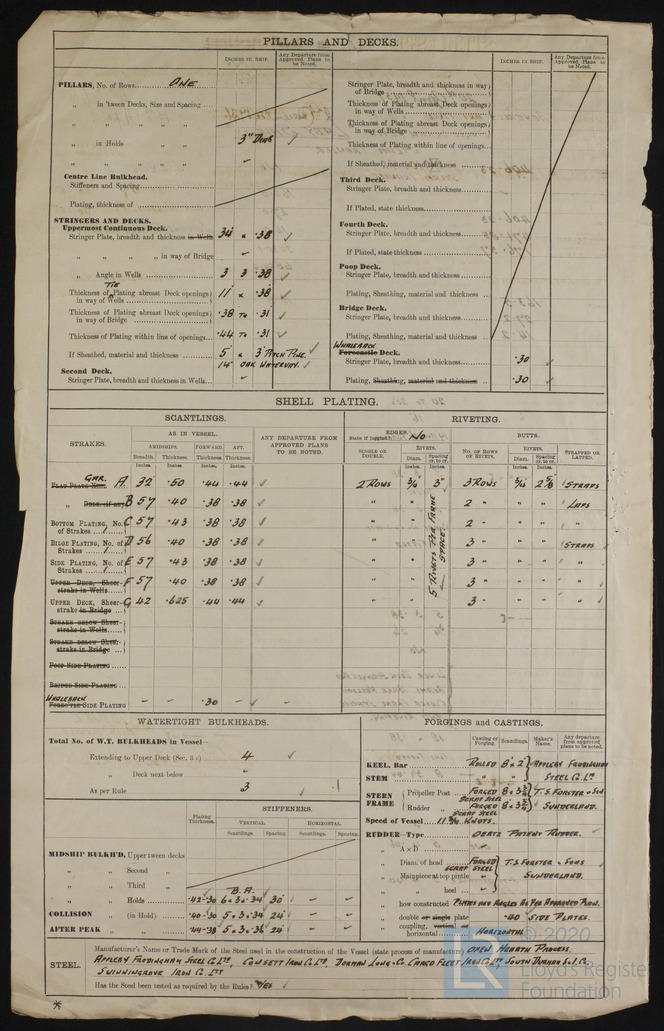 PILLARS AND DECKS.
INCHES IN SHIP.
Any Departure from Approved Plans to be Noted.
PILLARS, No. of Rows ONE
„ in 'tween Decks, Size and Spacing
„ „ „ „
„ in Holds „ „ 3" Diar
„ „ „ „
Centre Line Bulkhead.
Stiffeners and Spacing
Plating, thickness of
STRINGERS AND DECKS.
Uppermost Continuous Deck.
Stringer Plate, breadth and thickness in Wells 34 x .38 ✓
„ „ „ „ in way of Bridge
„ Angle in Wells 3 3 .38 ✓
TIE
Thickness of Plating abreast Deck openings in way of Wells 11 x .38 ✓
Thickness of Plating abreast Deck openings in way of Bridge .38 To .31 ✓
Thickness of Plating within line of openings .44 To .31 ✓
If Sheathed, material and thickness 5 x 3 PITCH PINE. ✓
14" OAK WATERWAY. ✓
Second Deck.
Stringer Plate, breadth and thickness in Wells
INCHES IN SHIP.
Any Departure from Approved Plans to be Noted.
Stringer Plate, breadth and thickness in way of Bridge
Thickness of Plating abreast Deck openings in way of Wells
Thickness of Plating abreast Deck openings in way of Bridge
Thickness of Plating within line of openings
If Sheathed, material and thickness
Third Deck.
Stringer Plate, breadth and thickness
If Plated, state thickness
Fourth Deck.
Stringer Plate, breadth and thickness
If Plated, state thickness
Poop Deck.
Stringer Plate, breadth and thickness
Plating, Sheathing, material and thickness
Bridge Deck.
Stringer Plate, breadth and thickness
Plating, Sheathing, material and thickness
WHALEBACK
Forecastle Deck.
Stringer Plate, breadth and thickness .30 ✓
Plating, Sheathing, material and thickness .30 ✓
SHELL PLATING.
SCANTLINGS.
RIVETING.
STRAKES.
AS IN VESSEL.
AMIDSHIPS.
FORWARD.
AFT.
Breadth. Thickness. Thickness. Thickness.
Inches. Inches. Inches. Inches.
ANY DEPARTURE FROM APPROVED PLANS TO BE NOTED.
EDGES.
State if joggled? No
SINGLE OR DOUBLE.
RIVETS.
Diam. Spacing cr. to cr.
Inches. Inches.
BUTTS.
NO. OF ROWS OF RIVETS.
RIVETS.
Diam. Spacing cr. to cr.
Inches. Inches.
STRAPPED OR LAPPED.
GAR.
FLAT PLATE KEEL A 32 .50 .44 .44 ✓ 2 ROWS 3/4 3" 3 ROWS 3/4 2 5/8 STRAPS
„ DBLG. (if any) B 57 .40 .38 .38 ✓ „ „ 2 „ LAPS
BOTTOM PLATING, No. of Strakes 1 C 57 .43 .38 .38 ✓ „ „ 2 „ „
BILGE PLATING, No. of Strakes 1 D 56 .40 .38 .38 ✓ „ „ 3 „ STRAPS
SIDE PLATING, No. of Strakes 1 E 57 .43 .38 .38 ✓ „ „ 3 „ „
UPPER DECK, Sheer-strake in Wells F 57 .40 .38 .38 ✓ „ „ 3 „ „
UPPER DECK, Sheer-strake in Bridge G 42 .625 .44 .44 ✓ „ „ 3 „ „
5 RIVETS PER FRAME SPACE.
STRAKE BELOW Sheer-strake in Wells
STRAKE BELOW Sheer-strake in Bridge
POOP SIDE PLATING
BRIDGE SIDE PLATING
WHALEBACK
FORE'TLE SIDE PLATING – – .30 ✓ –
WATERTIGHT BULKHEADS.
Total No. of W.T. BULKHEADS in Vessel—
Extending to Upper Deck (Sec. 3 c) 4 ✓
„ Deck next below
As per Rule 3 ✓
Plating Thickness.
STIFFENERS.
VERTICAL. HORIZONTAL.
Scantlings. Spacing. Scantlings. Spacing.
MIDSHIP BULKH'D, Upper tween decks
„ „ Second „
„ „ Third „
B.A.
„ „ Holds .42-.30 6 x 3 x .34 30" – –
COLLISION „ (in Hold) .40-.30 5 x 3 x .34 24" – –
AFTER PEAK „ „ .44-.38 5 x 3 x .36 24" – –
FORGINGS and CASTINGS.
Casting or Forging.
Scantlings.
Maker's Name.
Any departure from approved plans to be noted.
KEEL, Bar ROLLED 8 x 2 APPLEBY FRODINGHAM
STEM „ „ STEEL Co. Ltd
STERN FRAME
Propeller Post FORGED SCRAP STEEL 8 x 3 3/4 T. S. FORSTER & SONS
Rudder „ FORGED SCRAP STEEL 8 x 3 3/4 SUNDERLAND.
Speed of Vessel KNOTS.
RUDDER—Type OERTZ PATENT RUDDER.
„ A x D
„ Diam. of head FORGED SCRAP STEEL T. S. FORSTER & SONS
„ Mainpiece at top pintle „ SUNDERLAND.
„ „ heel „
„ how constructed PLATES AND ANGLES AS PER APPROVED PLAN.
„ double or single plate .40 SIDE PLATES.
„ coupling, vertical or horizontal HORIZONTAL
STEEL.
Manufacturer's Name or Trade Mark of the Steel used in the construction of the Vessel (state process of manufacture) OPEN HEARTH PROCESS.
APPLEBY FRODINGHAM STEEL Co. Ltd, CONSETT IRON Co. Ltd, DORMAN LONG & Co. CARGO FLEET IRON Co. Ltd, SOUTH DURHAM S. & I. Co.
SKINNINGROVE IRON Co. Ltd
Has the Steel been tested as required by the Rules? YES ✓
© 2020
Lloyd's Register
Foundation
LR
*